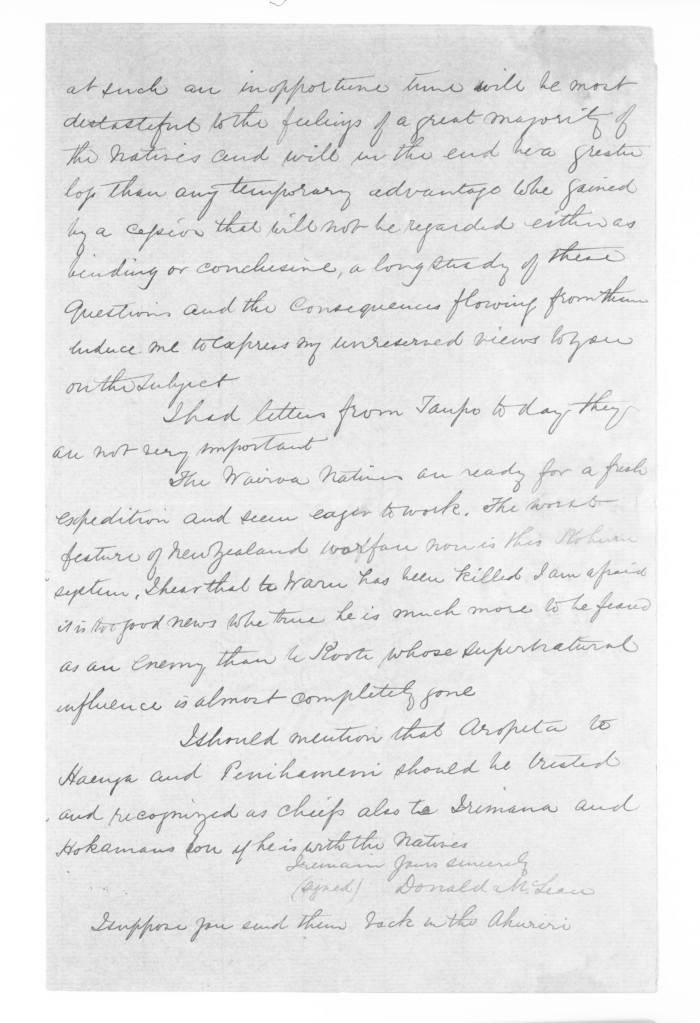 at such an inopportune time will be most
destasteful to the feelings of a great majority of
the Natives and will in the end be a greater
loss than any temporary advantage to be gained
by a cession that will not be regarded either as
binding or conclusive, a long study of these
Questions and the Consequences flowing from them
induce me to express my unreserved views to you
on the subject
I had letters from Taupo to day they
are not very important
The Wairoa Natives are ready for a fresh
expedition and seem eager to work. The worst
feature of New Zealand warfare now is this
system, I hear that te Waru has been killed I am afraid
it is too good news to be true he is much more to be feared
as an enemy than te Kooti whose supernatural
influence is almost completely gone
I should mention that Aropeta te
Haenga and Penihameni should be trusted
and recognized as chiefs also te Irimana and
Hokamans son if he is with the Natives
I remain Yours sincerely
(signed) Donald McLean
I suppose you send them back in the Ahuriri